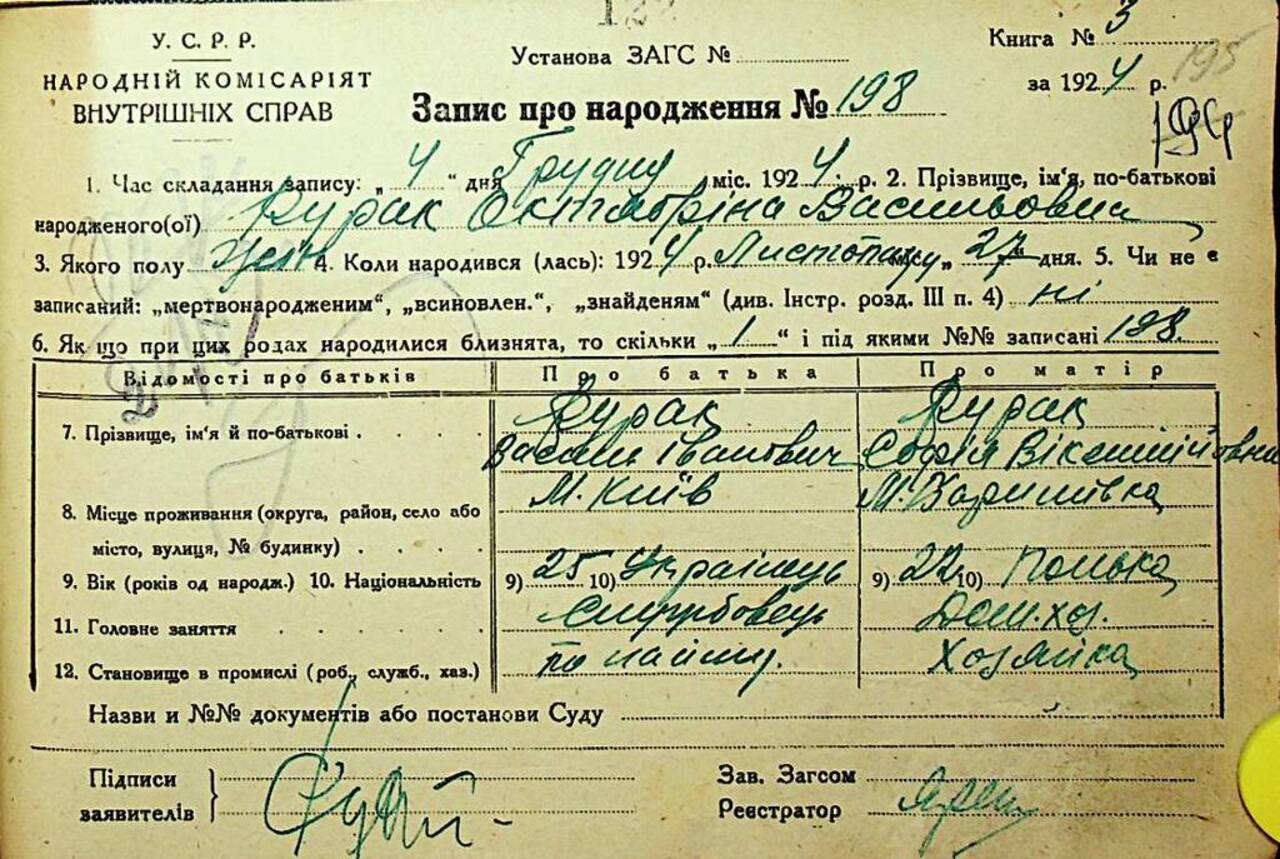 У. С. Р. Р.
НАРОДНІЙ КОМІСАРІЯТ
ВНУТРІШНІХ СПРАВ
Установа ЗАГС №
Книга № 3
за 1924 р.
195
194
Запис про народження № 198
1. Час складання запису: „ 4 “ дня Грудня міс. 1924 р. 2. Прізвище, ім'я, по-батькові
народженого(ої) Рурак Октябріна Васильовна
3. Якого полу жен 4. Коли народився (лась): 1924 р. Листопаду „ 27 дня. 5. Чи не є
записаний: „мертвонародженим“, „всиновлен.“, „знайденям“ (див. Інстр. розд. III п. 4) ні
6. Як що при цих родах народилися близнята, то скільки „ 1 “ і під якими №№ записані 198.
Відомості про батьків Про батька Про матір
7. Прізвище, ім'я й по-батькові . . . . Рурак Рурак
Василь Іванович Софія
8. Місце проживання (округа, район, село або М. Київ М.
місто, вулиця, № будинку) . . . .
9. Вік (років од народж.) 10. Національність 9) 25 10) Українець 9) 22 10) Полька
11. Головне заняття . . . . . Службовець Дом. хоз.
12. Становище в промислі (роб., служб., хаз.) по найму. Хозяйка
Назви и №№ документів або постанови Суду
Підписи
заявителів
Зав. Загсом
Реєстратор